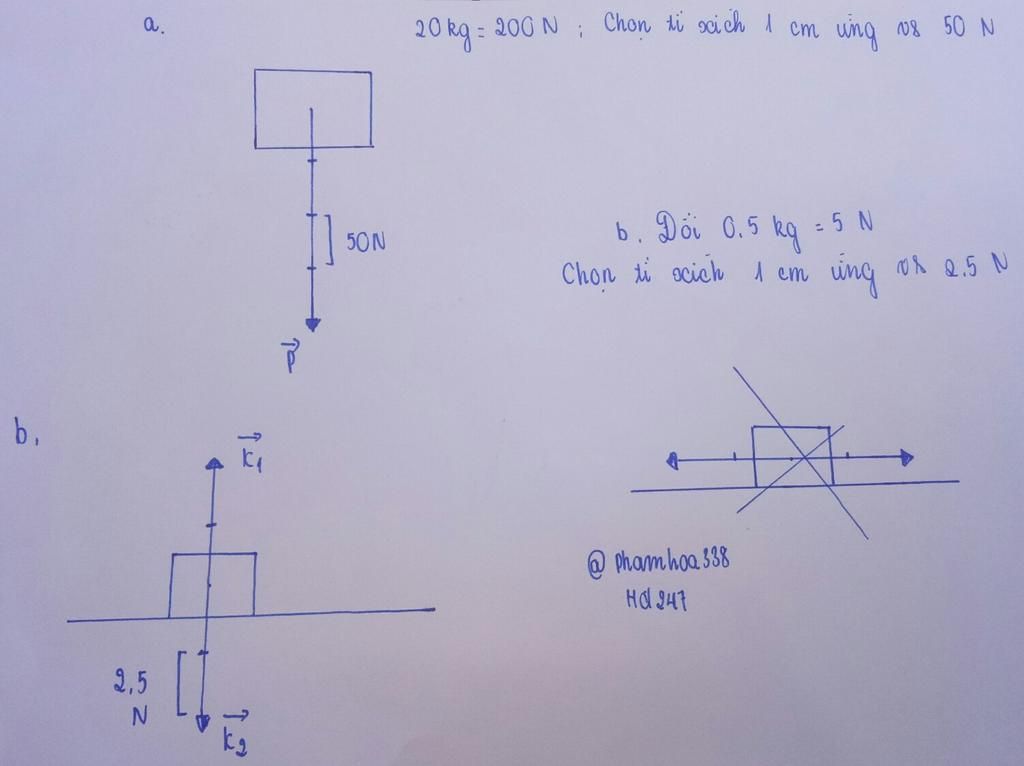 a.
20kg = 200 N ; Chọn tỉ xích 1 cm ứng vs 50 N
50N
P
b. Đổi 0.5 kg = 5 N
Chọn tỉ xích 1 cm ứng vs 2.5 N
b.
K1
2,5
N
K2
@ phamhoa338
Hd247